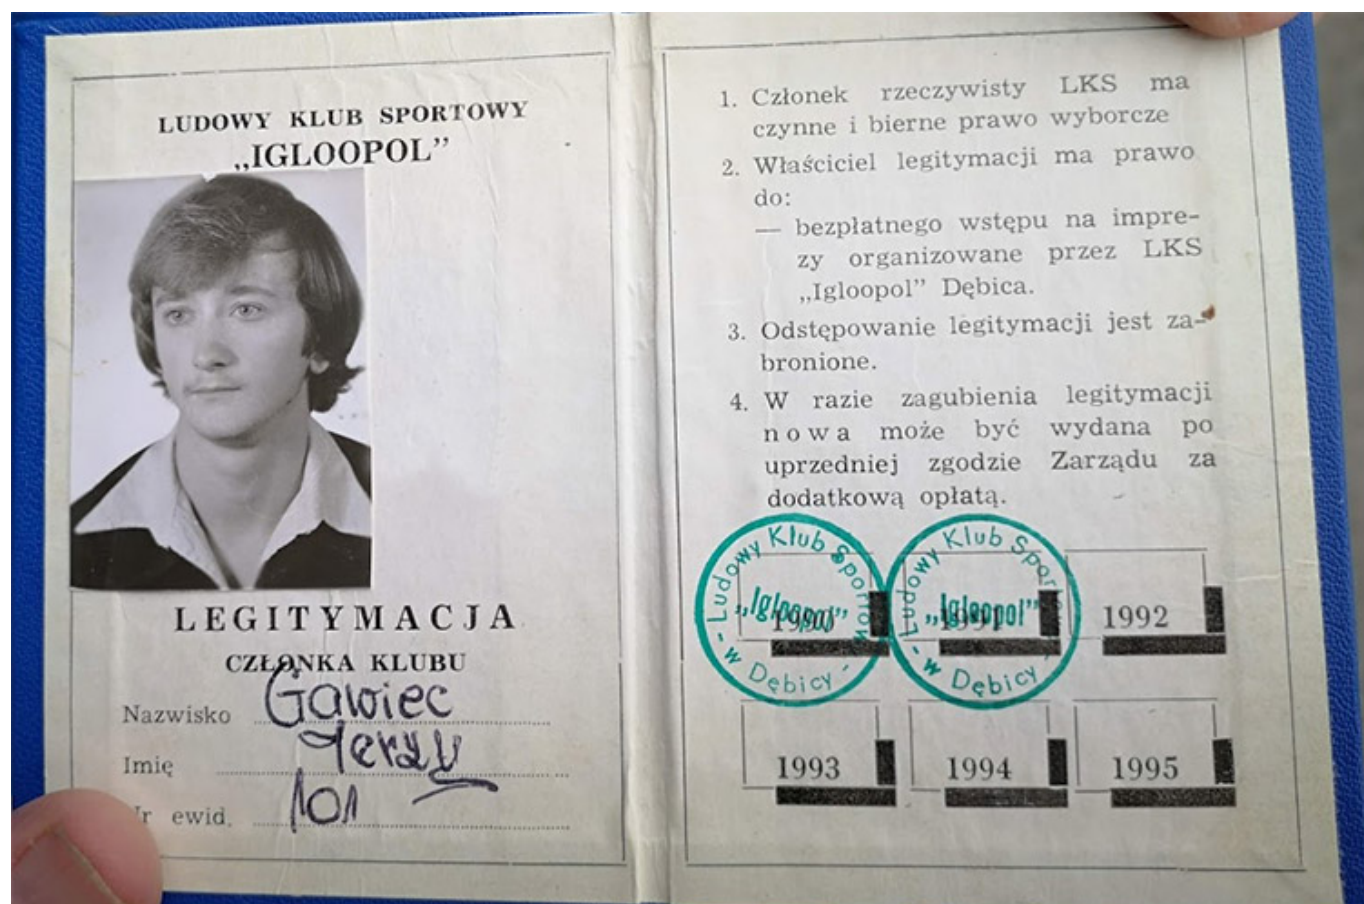 LUDOWY KLUB SPORTOWY
„IGLOOPOL”
LEGITYMACJA
CZŁONKA KLUBU
Nazwisko Gawiec
Imię Jerzy
Nr ewid. 101
1. Członek rzeczywisty LKS ma
czynne i bierne prawo wyborcze
2. Właściciel legitymacji ma prawo
do:
— bezpłatnego wstępu na impre-
zy organizowane przez LKS
„Igloopol” Dębica.
3. Odstępowanie legitymacji jest za-
bronione.
4. W razie zagubienia legitymacji
nowa może być wydana po
uprzedniej zgodzie Zarządu za
dodatkową opłatą.
- Ludowy Klub Sportowy
„Igloopol”
- w Dębicy -
1990
- Ludowy Klub Sportowy
„Igloopol”
- w Dębicy -
1991
1992
1993
1994
1995